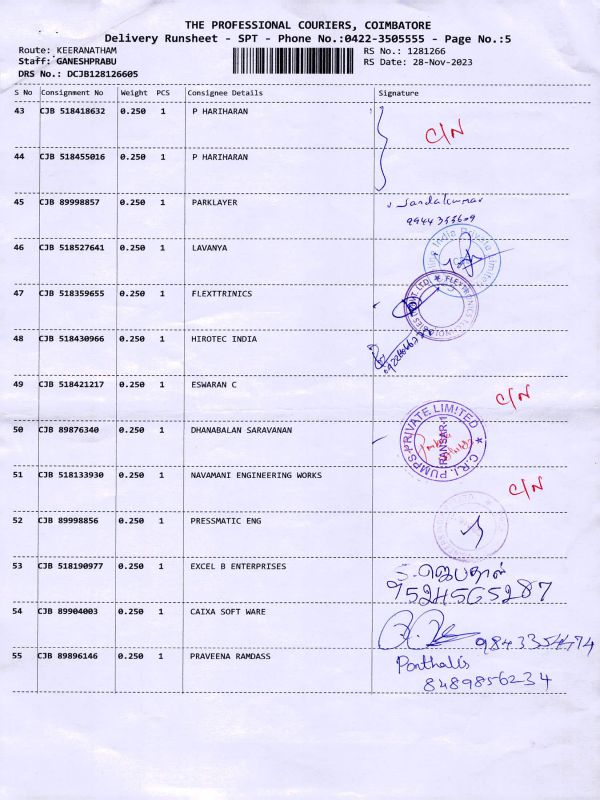 THE PROFESSIONAL COURIERS, COIMBATORE
Delivery Runsheet - SPT - Phone No.:0422-3505555 - Page No.:5
Route: KEERANATHAM RS No.: 1281266
Staff: GANESHPRABU RS Date: 28-Nov-2023
DRS No.: DCJB128126605
S No Consignment No Weight PCS Consignee Details Signature
43 CJB 518418632 0.250 1 P HARIHARAN
C/N
44 CJB 518455016 0.250 1 P HARIHARAN
45 CJB 89998857 0.250 1 PARKLAYER
46 CJB 518527641 0.250 1 LAVANYA
47 CJB 518359655 0.250 1 FLEXTTRINICS
48 CJB 518430966 0.250 1 HIROTEC INDIA
49 CJB 518421217 0.250 1 ESWARAN C C/N
50 CJB 89876340 0.250 1 DHANABALAN SARAVANAN C.R.I. PUMPS PRIVATE LIMITED
51 CJB 518133930 0.250 1 NAVAMANI ENGINEERING WORKS C/N
52 CJB 89998856 0.250 1 PRESSMATIC ENG
53 CJB 518190977 0.250 1 EXCEL B ENTERPRISES
9524565287
54 CJB 89904003 0.250 1 CAIXA SOFT WARE
9843354474
55 CJB 89896146 0.250 1 PRAVEENA RAMDASS
8489856234